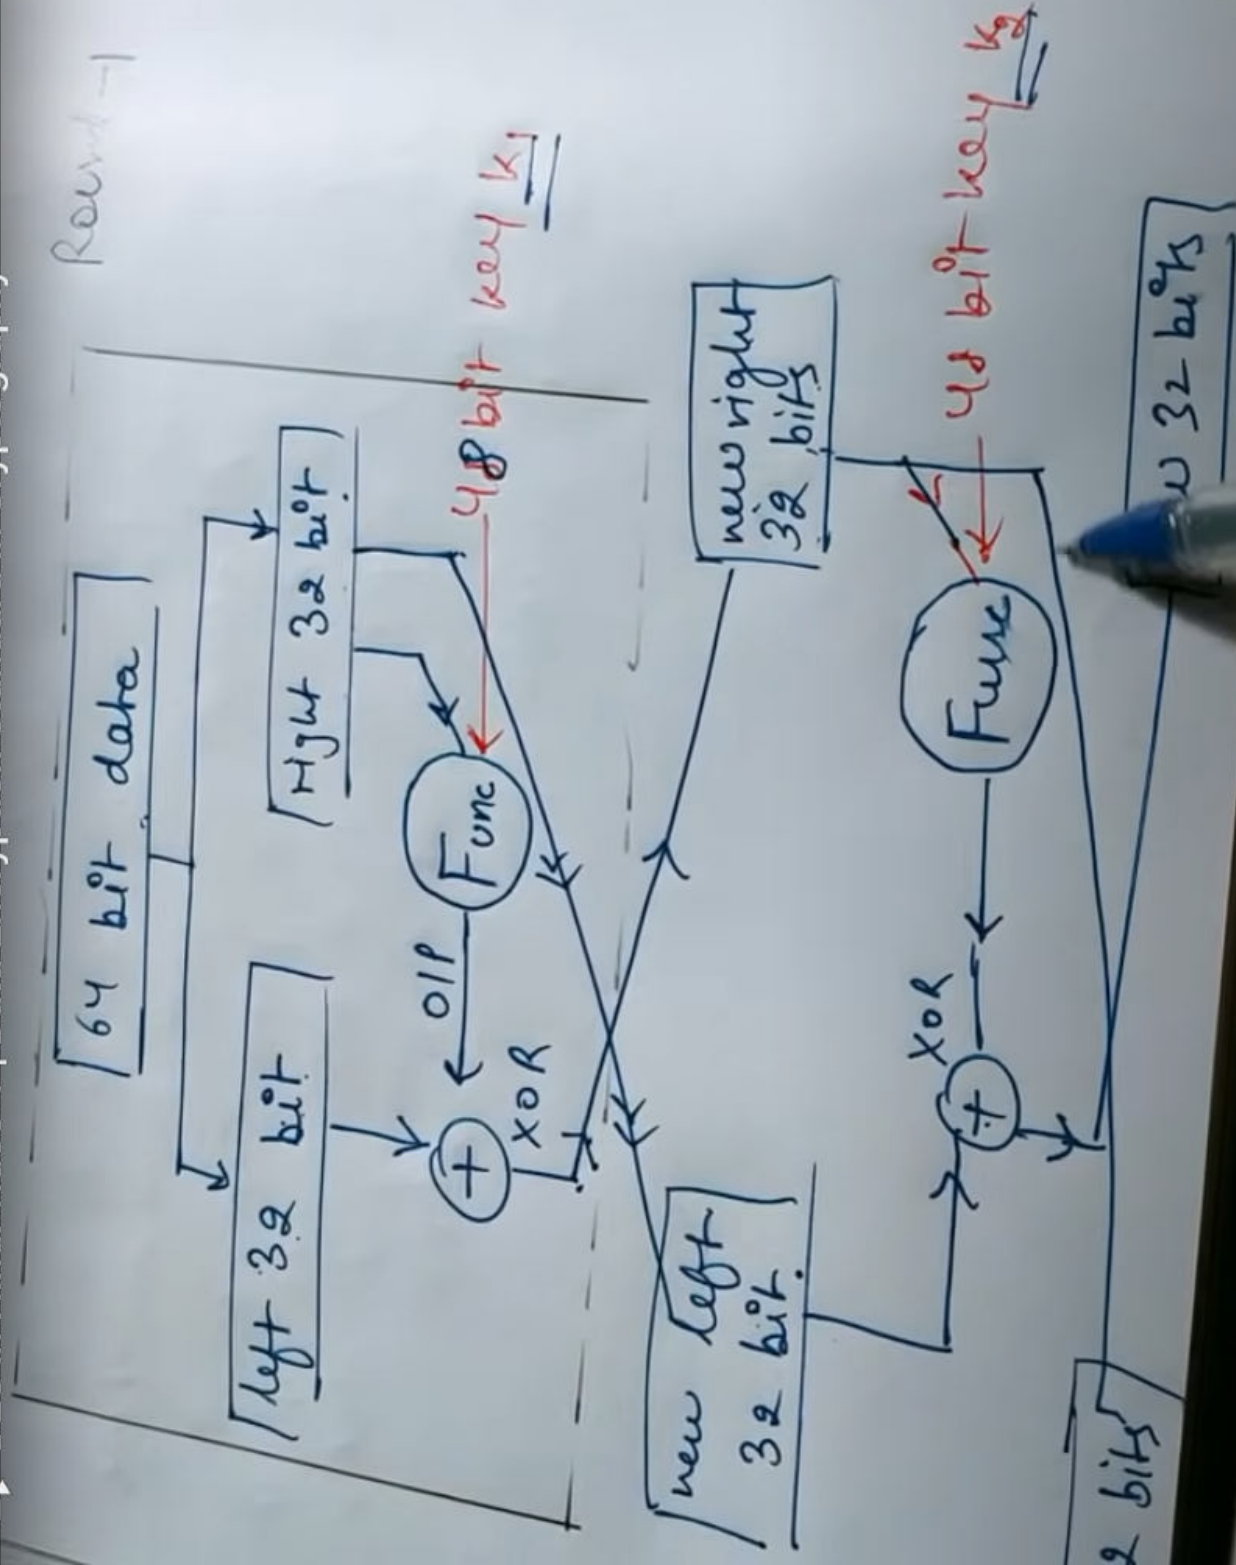 Round-1
64 bit data
left 32 bit
right 32 bit
48 bit key K1
Func
O/P
XOR
new left
32 bit.
new right
32 bits
48 bit key K2
Func
XOR
32 bits
2 bits